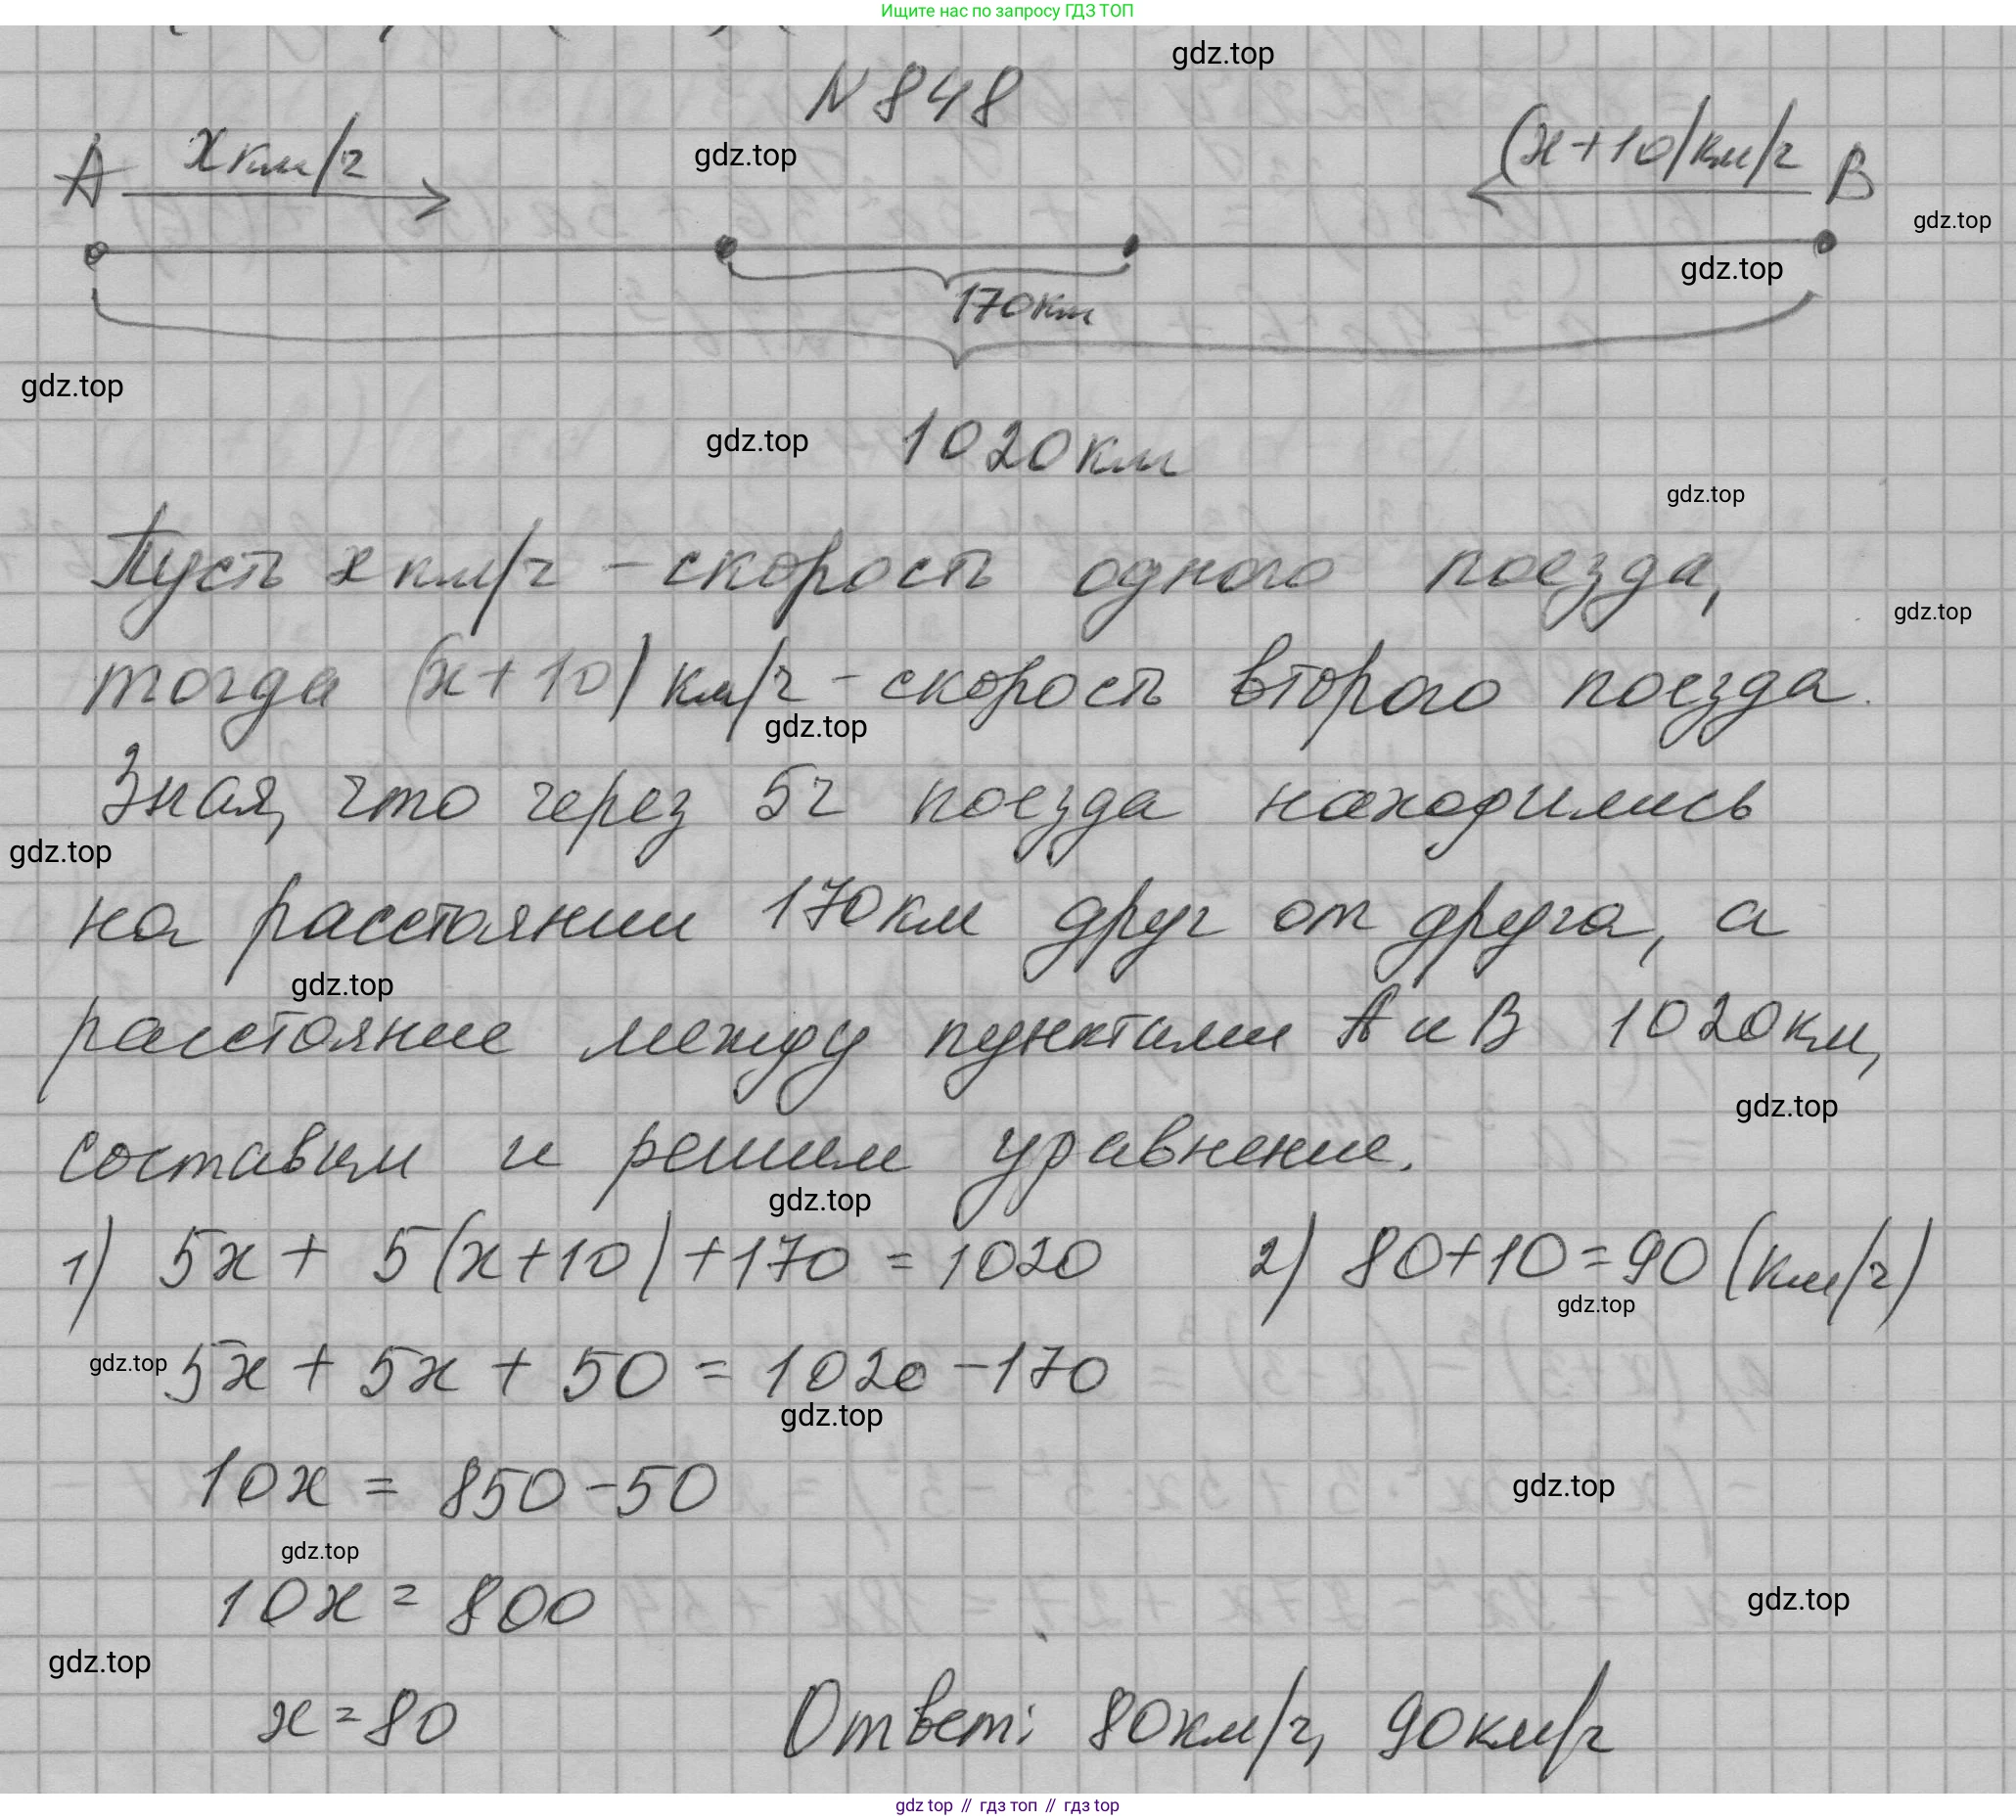 Ищите нас по запросу ГДЗ ТОП
gdz.top
N 848
gdz.top
A x км/ч
(x+10) км/ч B
gdz.top
gdz.top
170км
gdz.top
gdz.top
1020 км
gdz.top
Пусть x км/ч - скорость одного поезда,
gdz.top
тогда (x+10) км/ч - скорость второго поезда.
gdz.top
Зная, что через 5ч поезда находились
gdz.top
на расстоянии 170км друг от друга, а
gdz.top
расстояние между пунктами A и B 1020км,
gdz.top
составим и решим уравнение.
gdz.top
1) 5x + 5(x+10) + 170 = 1020
2) 80+10=90 (км/ч)
gdz.top
gdz.top
5x + 5x + 50 = 1020 - 170
gdz.top
10x = 850 - 50
gdz.top
gdz.top
10x = 800
gdz.top
gdz.top
x = 80
Ответ: 80км/ч, 90км/ч
gdz top // гдз топ // гдз top